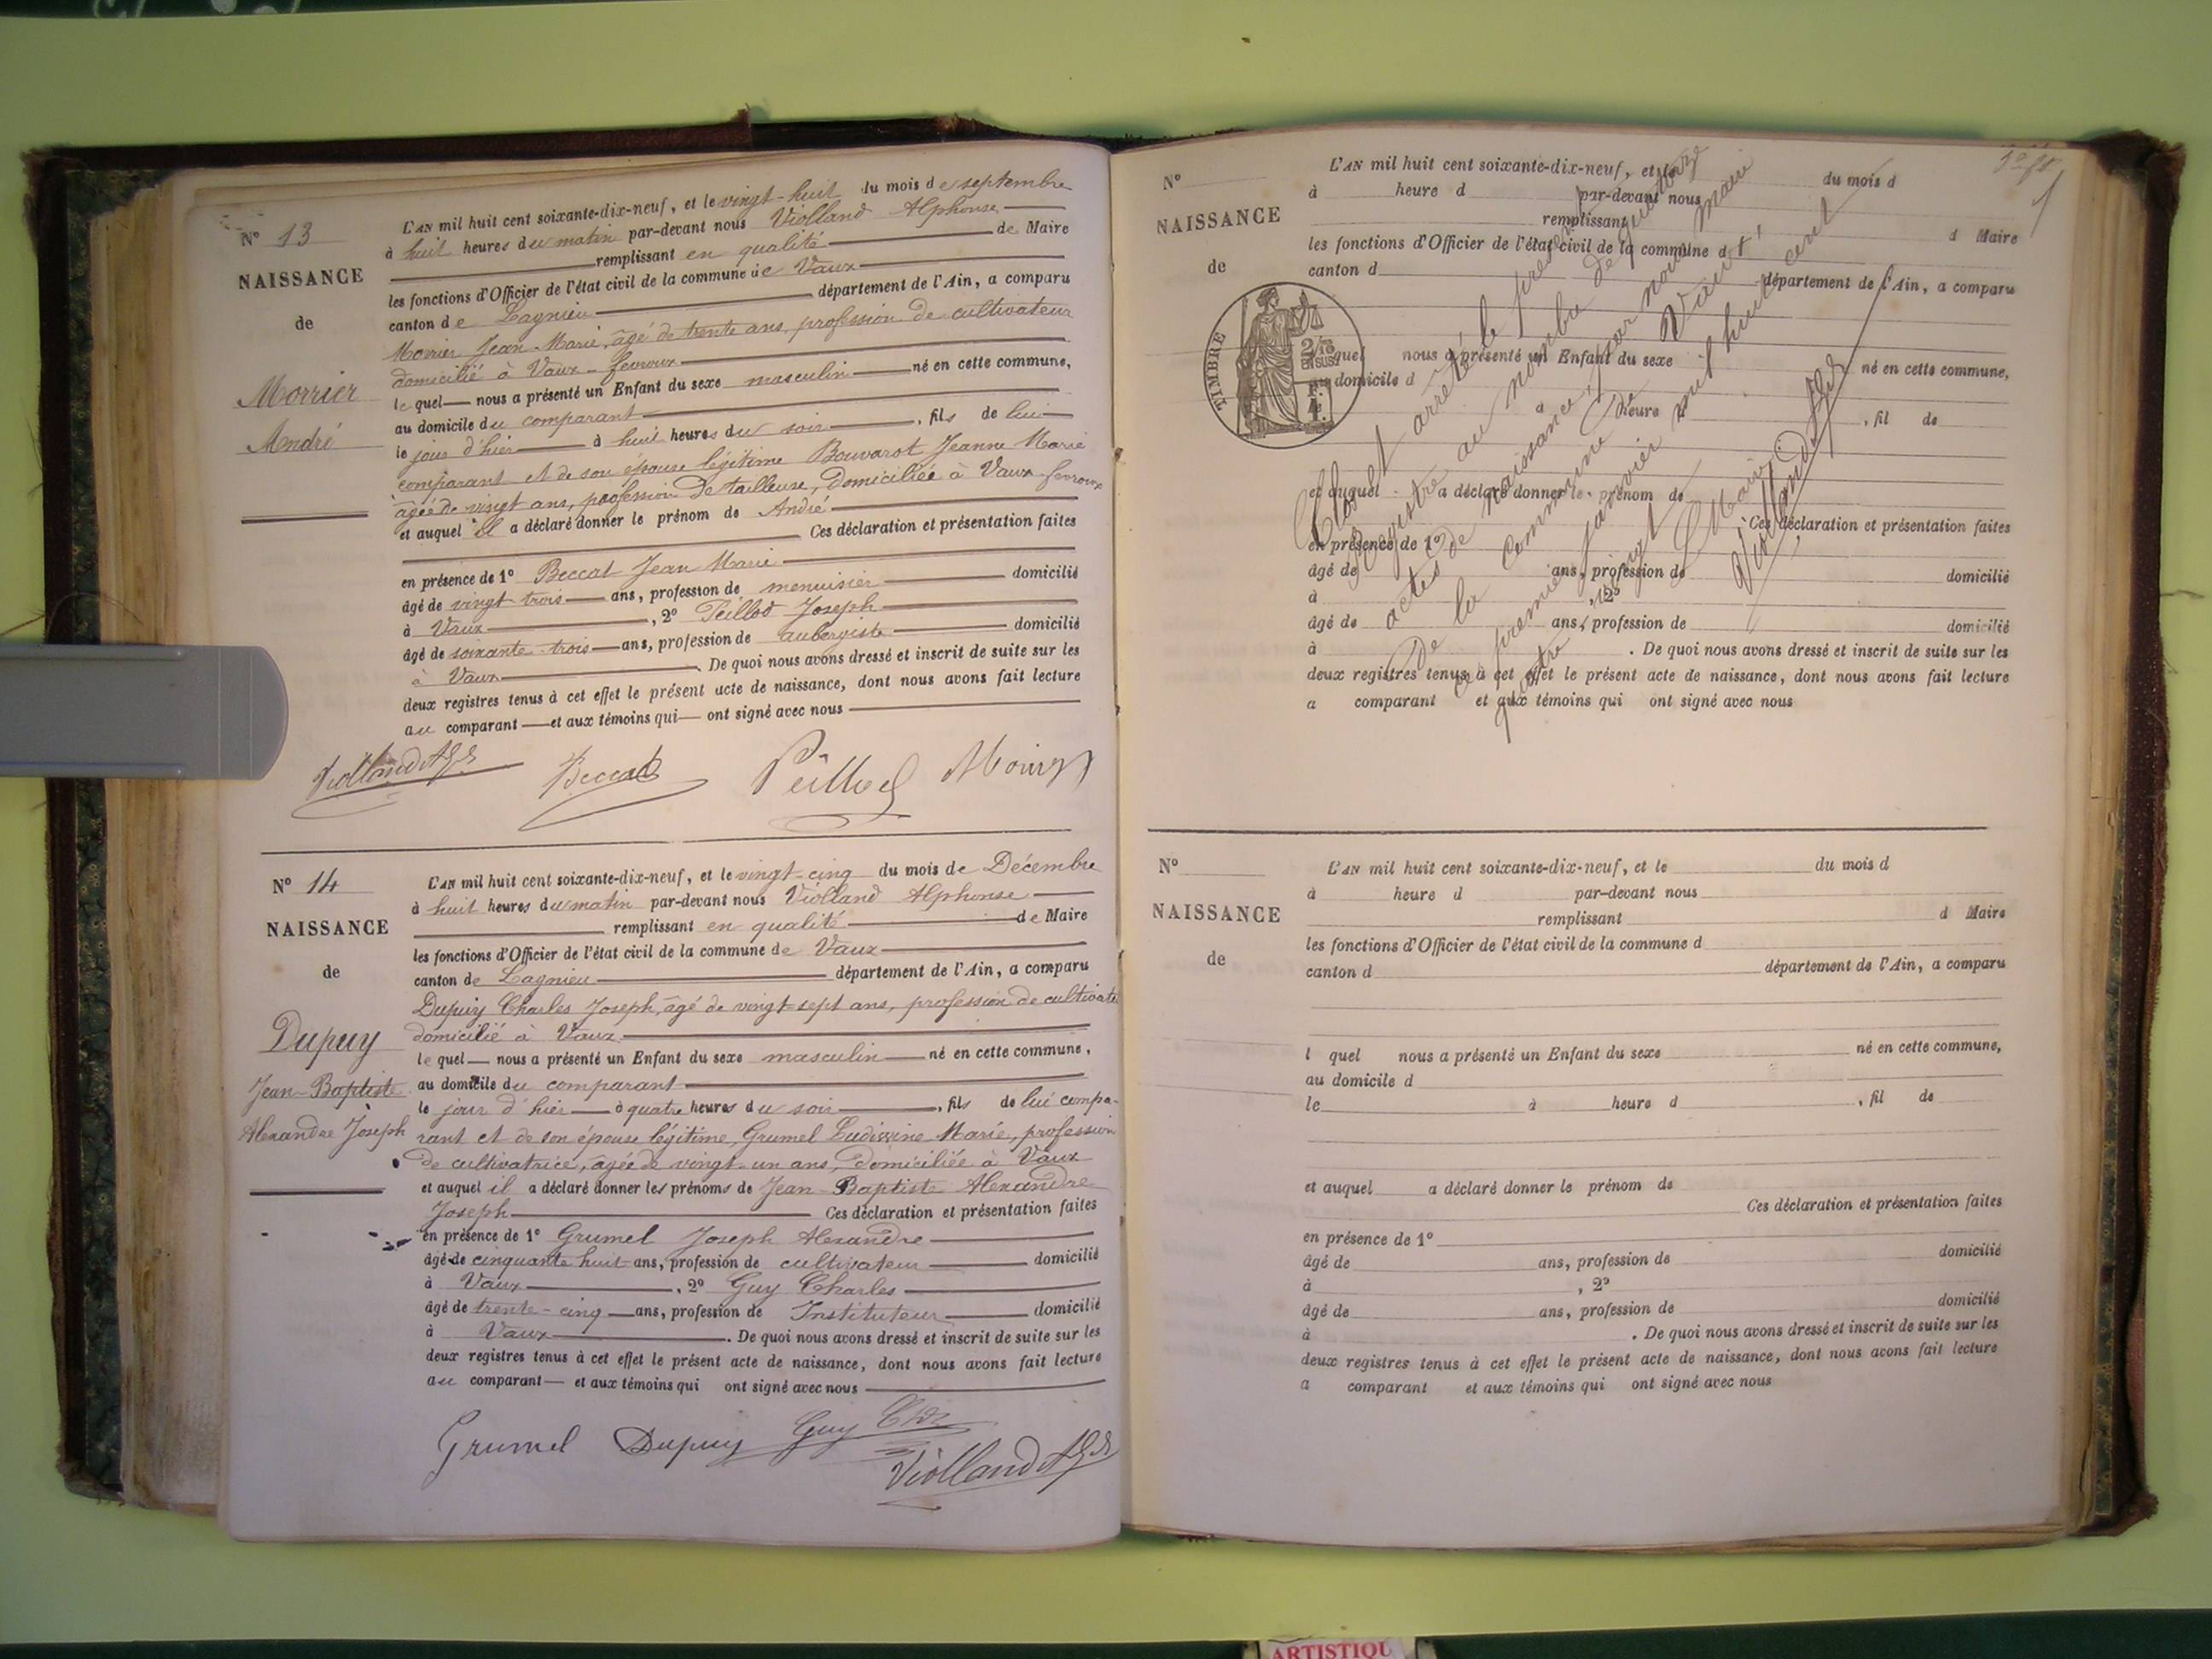 N° 13
NAISSANCE
de
Morrier
André
L'AN mil huit cent soixante-dix-neuf, et le vingt-huit du mois de septembre
à huit heures du matin par-devant nous Violland Alphonse
remplissant en qualité de Maire
les fonctions d'Officier de l'état civil de la commune de Vaux
canton de Lagnieu département de l'Ain, a comparu
Morrier Jean-Marie, âgé de trente ans, profession de cultivateur
domicilié à Vaux-fevroux
lequel nous a présenté un Enfant du sexe masculin né en cette commune,
au domicile du comparant
le jour d'hier à huit heures du soir, fils de lui
comparant et de son épouse légitime Bouvarot Jeanne Marie
âgée de vingt ans, profession de tailleuse, domiciliée à Vaux-fevroux
et auquel il a déclaré donner le prénom de André
Ces déclaration et présentation faites
en présence de 1° Beccat Jean Marie
âgé de vingt trois ans, profession de menuisier domicilié
à Vaux, 2° Peillod Joseph
âgé de soixante-trois ans, profession de aubergiste domicilié
à Vaux. De quoi nous avons dressé et inscrit de suite sur les
deux registres tenus à cet effet le présent acte de naissance, dont nous avons fait lecture
au comparant et aux témoins qui ont signé avec nous
Violland Beccat Peillod
N° 14
NAISSANCE
de
Dupuy
Jean-Baptiste
Alexandre Joseph
L'AN mil huit cent soixante-dix-neuf, et le vingt-cinq du mois de Décembre
à huit heures du matin par-devant nous Violland Alphonse
remplissant en qualité de Maire
les fonctions d'Officier de l'état civil de la commune de Vaux
canton de Lagnieu département de l'Ain, a comparu
Dupuy Charles Joseph, âgé de vingt-sept ans, profession de cultivate
domicilié à Vaux
lequel nous a présenté un Enfant du sexe masculin né en cette commune,
au domicile du comparant
le jour d'hier à quatre heures du soir, fils de lui compa-
rant et de son épouse légitime, Grumel Ludivine Marie, profession
de cultivatrice, âgée de vingt-un ans, domiciliée à Vaux
et auquel il a déclaré donner les prénoms de Jean-Baptiste Alexandre
Joseph Ces déclaration et présentation faites
en présence de 1° Grumel Joseph Alexandre
âgé de cinquante huit ans, profession de cultivateur domicilié
à Vaux, 2° Guy Charles
âgé de trente-cinq ans, profession de Instituteur domicilié
à Vaux. De quoi nous avons dressé et inscrit de suite sur les
deux registres tenus à cet effet le présent acte de naissance, dont nous avons fait lecture
au comparant et aux témoins qui ont signé avec nous
Grumel Dupuy Guy Ch
Violland
N°
NAISSANCE
de
TIMBRE
2/10
EN SUS
L'AN mil huit cent soixante-dix-neuf, et le du mois d
à heure d par-devant nous
remplissant d Maire
les fonctions d'Officier de l'état civil de la commune d
canton d département de l'Ain, a comparu
quel nous a présenté un Enfant du sexe né en cette commune,
domicile d
à heure d, fil de
et auquel a déclaré donner le prénom de
Ces déclaration et présentation faites
en présence de 1°
âgé de ans, profession de domicilié
à, 2°
âgé de ans, profession de domicilié
à. De quoi nous avons dressé et inscrit de suite sur les
deux registres tenus à cet effet le présent acte de naissance, dont nous avons fait lecture
a comparant et aux témoins qui ont signé avec nous
Clos et arrêté le présent
Registre au nombre de quatorze
actes de naissance, par nous maire
de la commune de Vaux
le premier janvier mil huit cent
quatre vingt
Le Maire
Violland
N°
NAISSANCE
de
L'AN mil huit cent soixante-dix-neuf, et le du mois d
à heure d par-devant nous
remplissant d Maire
les fonctions d'Officier de l'état civil de la commune d
canton d département de l'Ain, a comparu
l quel nous a présenté un Enfant du sexe né en cette commune,
au domicile d
le à heure d, fil de
et auquel a déclaré donner le prénom de
Ces déclaration et présentation faites
en présence de 1°
âgé de ans, profession de domicilié
à, 2°
âgé de ans, profession de domicilié
à. De quoi nous avons dressé et inscrit de suite sur les
deux registres tenus à cet effet le présent acte de naissance, dont nous avons fait lecture
a comparant et aux témoins qui ont signé avec nous
ARTISTIQU